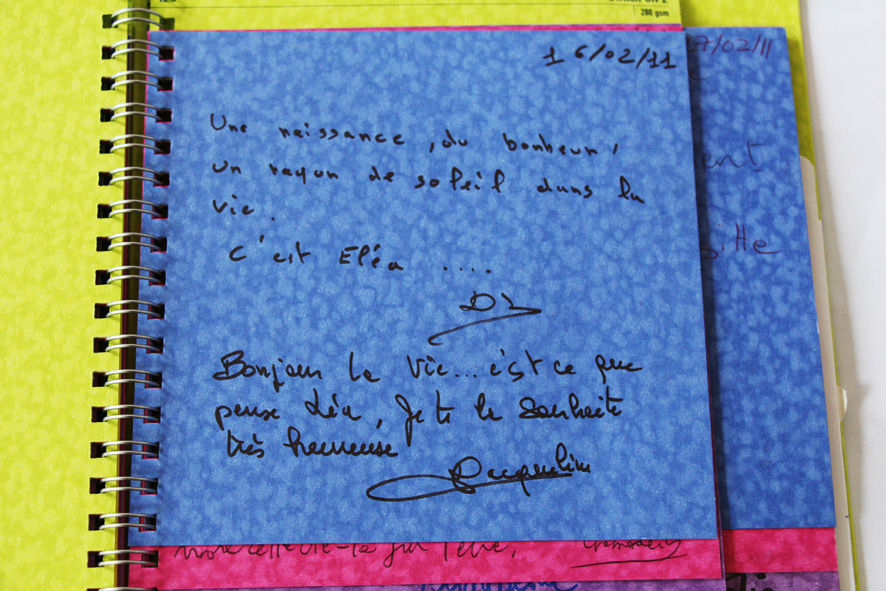 200 gsm
16/02/11
7/02/11
Une naissance, du bonheur,
un rayon de soleil dans la
vie.
C'est Eléa ....
Bonjour la vie... c'est ce que
pense Léa, Je te le souhaite
très heureuse
Jacqueline